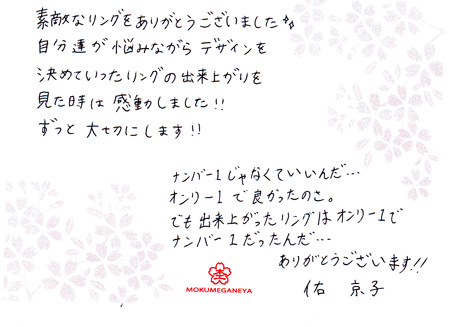 素敵なリングをありがとうございました♪
自分達が悩みながらデザインを
決めていったリングの出来上がりを
見た時は感動しました!!
ずっと大切にします!!
ナンバー1じゃなくていいんだ…
オンリー1で良かったのさ。
でも出来上がったリングはオンリー1で
ナンバー1だったんだ…
ありがとうございます!!
佑 京子
MOKUMEGANEYA